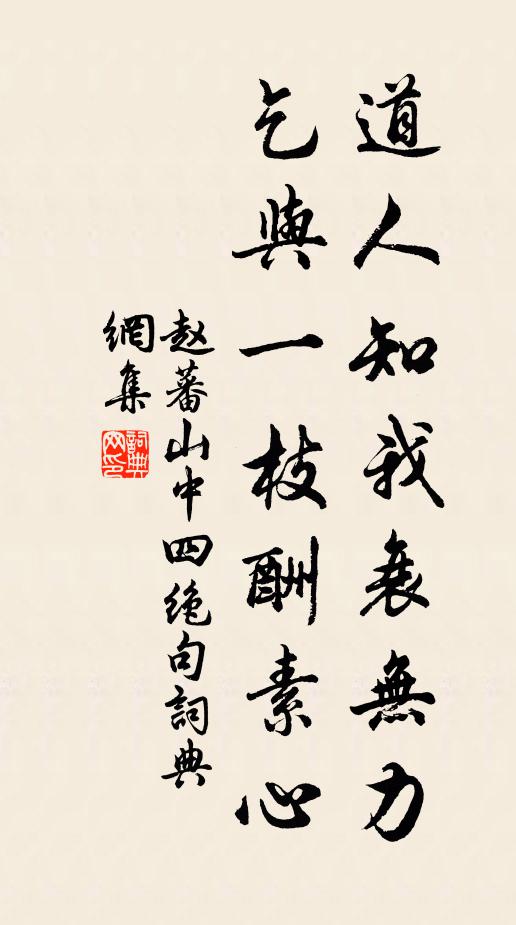 道人知我衰無力
乞與一枝酬素心
赵蕃山中四绝句詞典
網集
詞典
网印